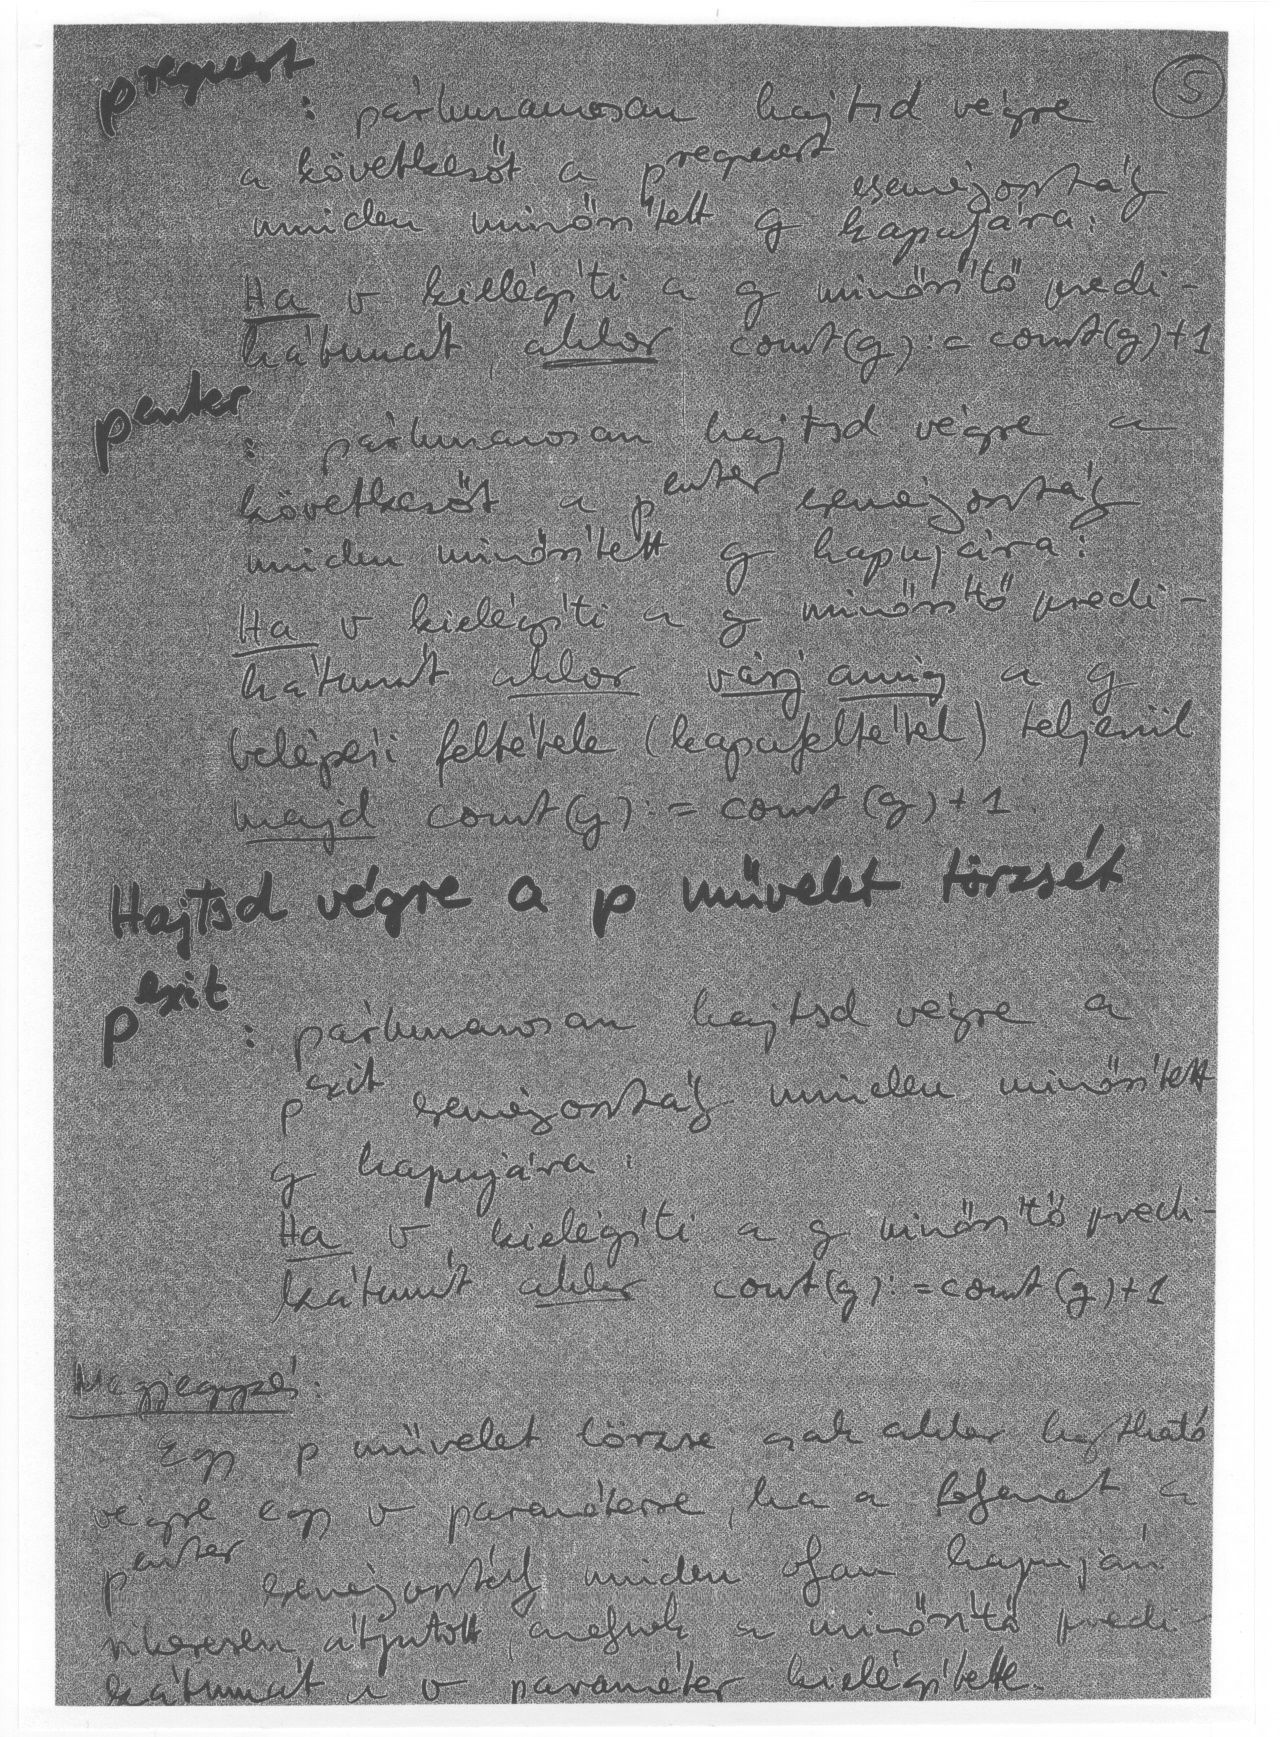 5
p^request : párhuzamosan hajtsd végre
a következőt a p^request eseményosztály
minden minősített g kapujára:
Ha v kielégíti a g minősítő predi-
kátumát, akkor count(g):=count(g)+1
p^enter : párhuzamosan hajtsd végre a
következőt a p^enter eseményosztály
minden minősített g kapujára:
Ha v kielégíti a g minősítő predi-
kátumát akkor várj amíg a g
belépési feltétele (kapufeltétel) teljesül
majd count(g):=count(g)+1
Hajtsd végre a p művelet törzsét
p^exit : párhuzamosan hajtsd végre a
p^exit eseményosztály minden minősített
g kapujára:
Ha v kielégíti a g minősítő predi-
kátumát akkor count(g):=count(g)+1
Megjegyzés:
Egy p művelet törzse csak akkor hajtható
végre egy v paraméterre, ha a folyamat a
p^enter eseményosztály minden olyan kapuján
sikeresen átjutott, amelynek a minősítő predi-
kátumát a v paraméter kielégítette.